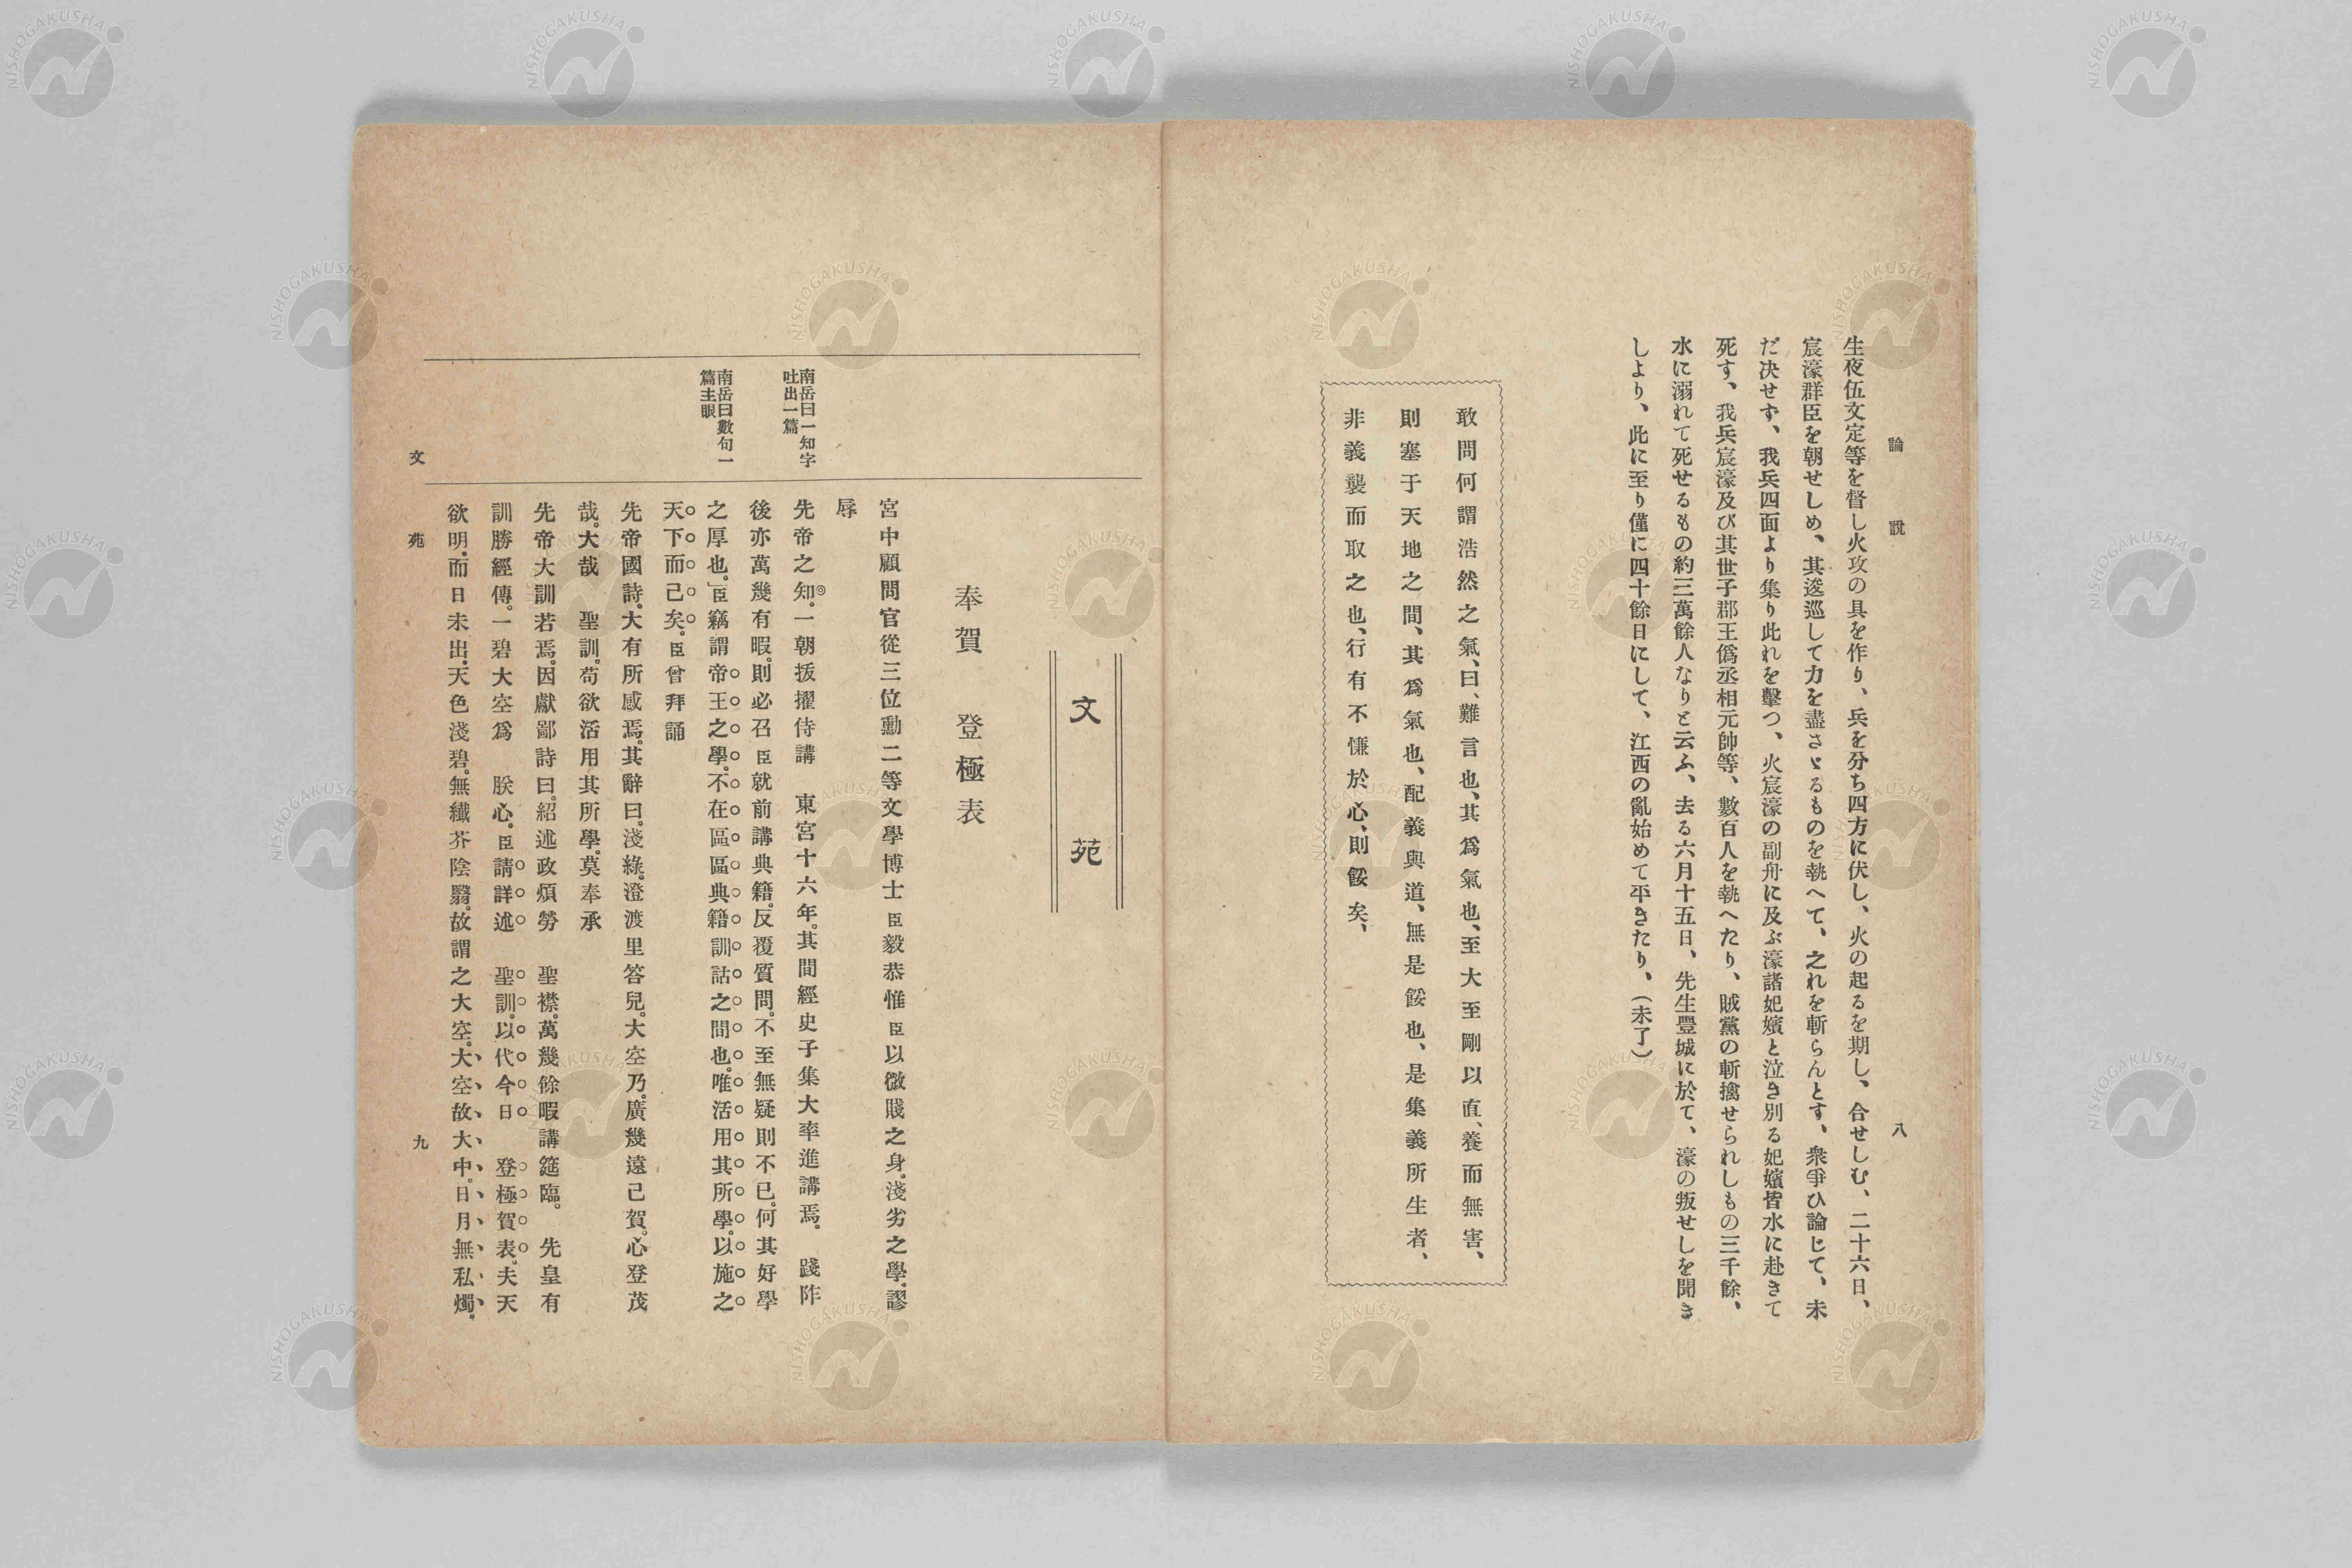 論說
八
生夜伍文定等を督し火攻の具を作り、兵を分ち四方に伏し、火の起るを期し、合せしむ、二十六日、
宸濠群臣を朝せしめ、其逡巡して力を盡さゞるものを執へて、之れを斬らんとす、衆爭ひ論じて、未
だ決せず、我兵四面より集り此れを擊つ、火宸濠の副舟に及ぶ濠諸妃嬪と泣き別る妃嬪皆水に赴きて
死す、我兵宸濠及び其世子郡王僞丞相元帥等、數百人を執へたり、賊黨の斬擒せられしもの三千餘、
水に溺れて死せるもの約三萬餘人なりと云ふ、去る六月十五日、先生豐城に於て、濠の叛せしを聞き
しより、此に至り僅に四十餘日にして、江西の亂始めて平きたり、(未了)
敢問何謂浩然之氣、曰、難言也、其爲氣也、至大至剛以直、養而無害、
則塞于天地之間、其爲氣也、配義與道、無是餒也、是集義所生者、
非義襲而取之也、行有不慊於心、則餒矣、
文苑
奉賀 登極表
宮中顧問官從三位勳二等文學博士臣毅恭惟臣以微賤之身。淺劣之學。謬
辱
先帝之知。一朝拔擢侍講 東宮十六年。其間經史子集大率進講焉。 踐阼
後亦萬幾有暇。則必召臣就前講典籍。反覆質問。不至無疑則不已。何其好學
之厚也。」臣竊謂帝王之學。不在區區典籍訓詁之間也。唯活用其所學。以施之
天下而已矣。臣曾拜誦
先帝國詩。大有所感焉。其辭曰。淺綠。澄渡里答兒。大空乃。廣幾遠己賀。心登茂
哉。大哉 聖訓。苟欲活用其所學。莫奉承
先帝大訓若焉。因獻鄙詩曰。紹述政煩勞 聖襟。萬幾餘暇講筵臨。 先皇有
訓勝經傳。一碧大空爲 朕心。臣請詳述 聖訓。以代今日 登極賀表。夫天
欲明。而日未出。天色淺碧。無纖芥陰翳。故謂之大空。大空故大中。日月無私燭。
南岳曰一知字
吐出一篇
南岳曰數句一
篇主眼
文苑
九
NISHOGAKUSHA